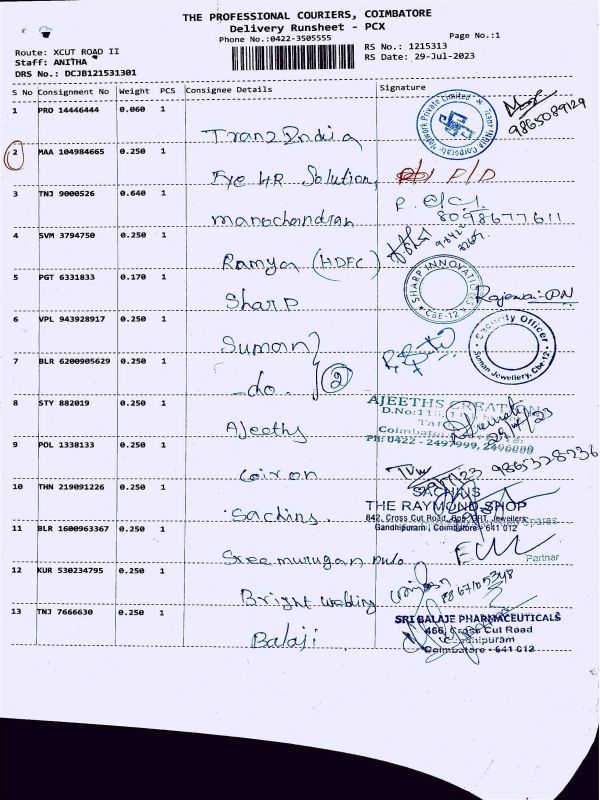 THE PROFESSIONAL COURIERS, COIMBATORE
Delivery Runsheet - PCX
Phone No.:0422-3505555
Page No.:1
Route: XCUT ROAD II
RS No.: 1215313
Staff: ANITHA
RS Date: 29-Jul-2023
DRS No.: DCJB121531301
S No Consignment No Weight PCS Consignee Details Signature
1 PRO 14446444 0.060 1 Tranz India
9865089129
2 MAA 104984665 0.250 1 Eye HR Solution,
3 TNJ 9000526 0.640 1 manochandran
8098677611
4 SVM 3794750 0.250 1 Ramya (HDFC)
5 PGT 6331833 0.170 1 Sharp
SHARP INNOVATIONS
CBE-12
6 VPL 943928917 0.250 1 Suman
Security Officer
Suman Jewellery, Cbe-12
7 BLR 6200905629 0.250 1 -do. 2
8 STY 882019 0.250 1 Ajeeths
AJEETHS CREATIONS
D.No:115,
Coimbatore
PH: 0422 - 2497999, 2490000
29/7/23
9 POL 1338133 0.250 1
9865328236
10 THN 219091226 0.250 1 Sachins.
SACHINS
THE RAYMOND SHOP
842, Cross Cut Road, Opp. GRT Jewellers,
Gandhipuram, Coimbatore - 641 012
11 BLR 1600963367 0.250 1 Sree murugan
Partner
12 KUR 530234795 0.250 1 Bright
13 TNJ 7666630 0.250 1 Balaji
SRI BALAJE PHARMACEUTICALS
466, Cross Cut Road
Gandhipuram
Coimbatore - 641 012